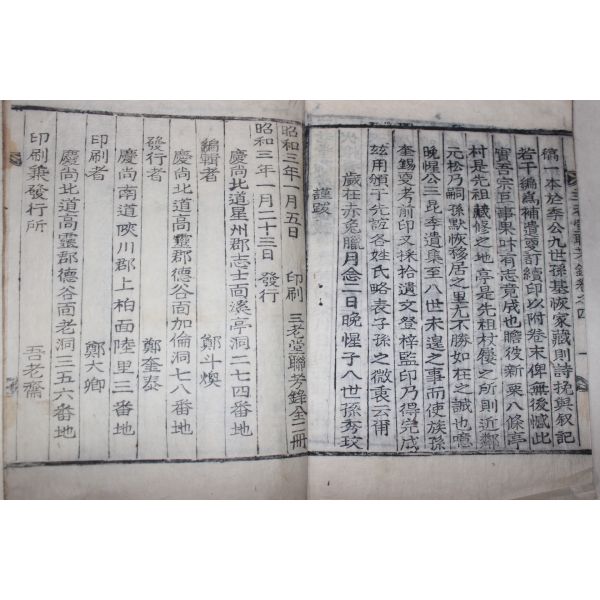 三老堂聯芳錄卷之四
稿一本於季公九世孫基恢家藏則詩挽與叙記
若干編爲補遺更訂續印以附卷末俾無後憾此
實吾宗亘事果叶有志竟成也瞻彼新栗八條亭
村是先祖藏修之地亭是先祖杖屨之所則近鄰
元松乃嗣孫默恢移居之里尤不勝如在之誠也噫
晚惺公三昆季遺集至八世未遑之事而使族孫
奎錫更考前印又採拾遺文登梓監印乃得完成
玆用頒于先誼各姓氏略表子孫之微衷云爾
歲在赤兔臘月念二日晚惺子八世孫秀玟
謹跋
昭和三年一月五日 印刷 三老堂聯芳錄全二冊
昭和三年一月二十三日 發行
慶尚北道星州郡志士面溪亭洞二七四番地
編輯者 鄭斗煥
慶尚北道高靈郡德谷面加倫洞七八番地
發行者 鄭奎泰
慶尚南道陜川郡上柏面陸里三番地
印刷者 鄭大卿
慶尚北道高靈郡德谷面老洞三五六番地
印刷兼發行所 吾老齋